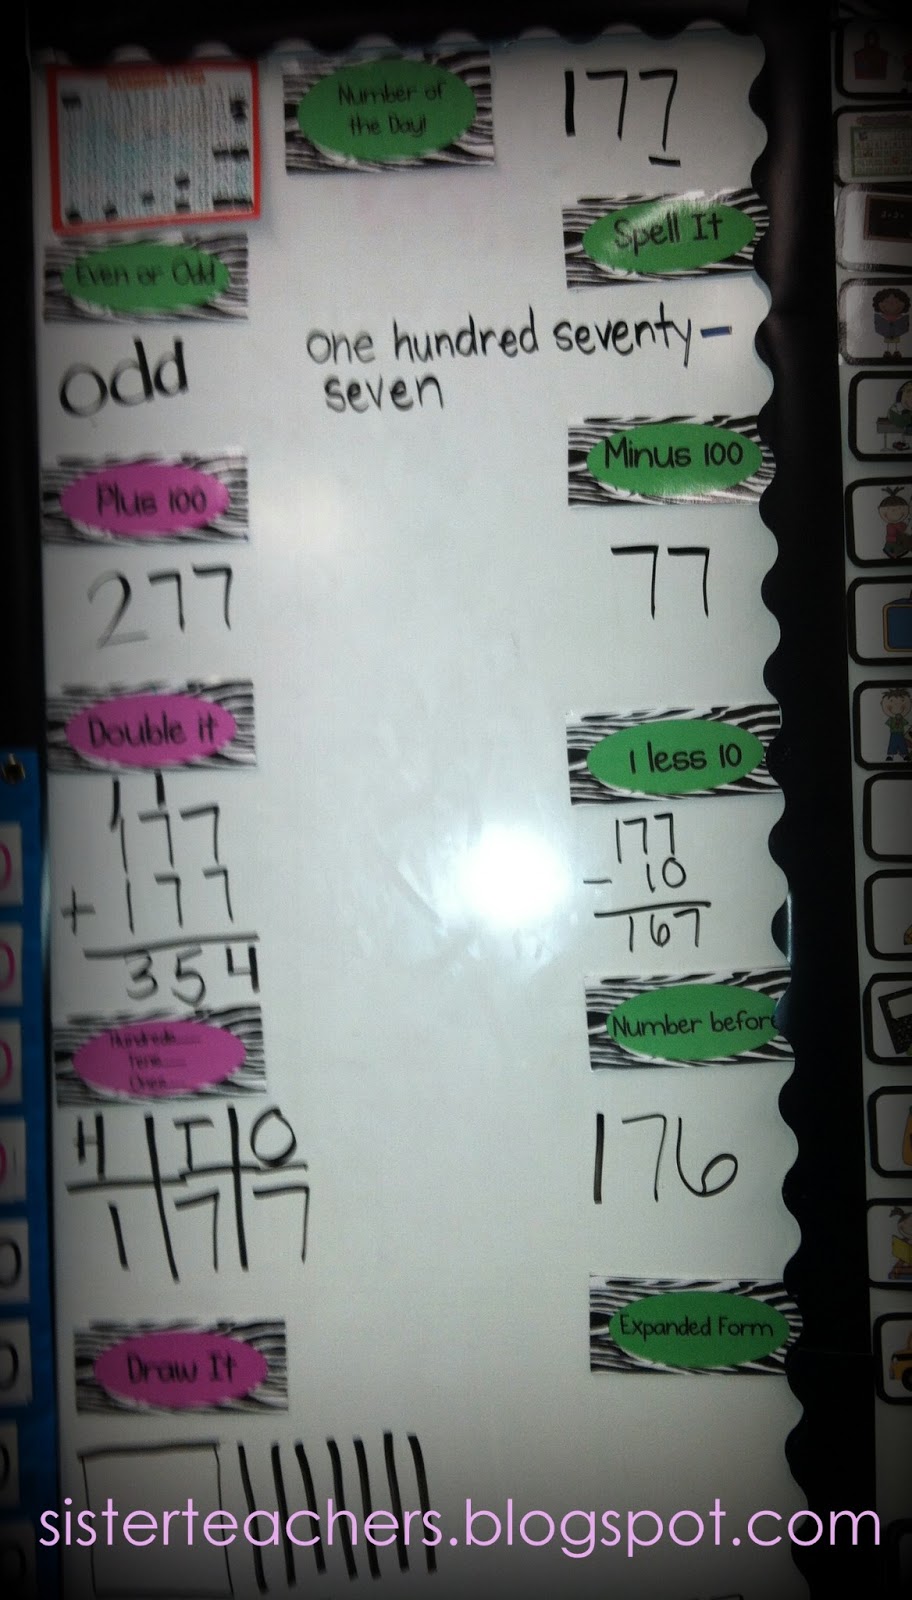 Number of
the Day!
177
Spell It
Even or Odd
odd
one hundred seventy-
seven
Plus 100
Minus 100
277
77
Double it
1 less 10
1 1
177
+ 177
354
177
- 10
167
Hundreds
Tens
Ones
Number before
H T O
1 7 7
176
Draw It
Expanded Form
sisterteachers.blogspot.com